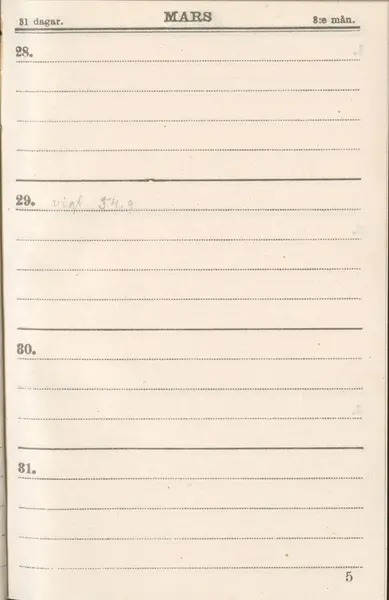 31 dagar. MARS 3:e mån.
28.
29. vigt 54,9
30.
31.
5